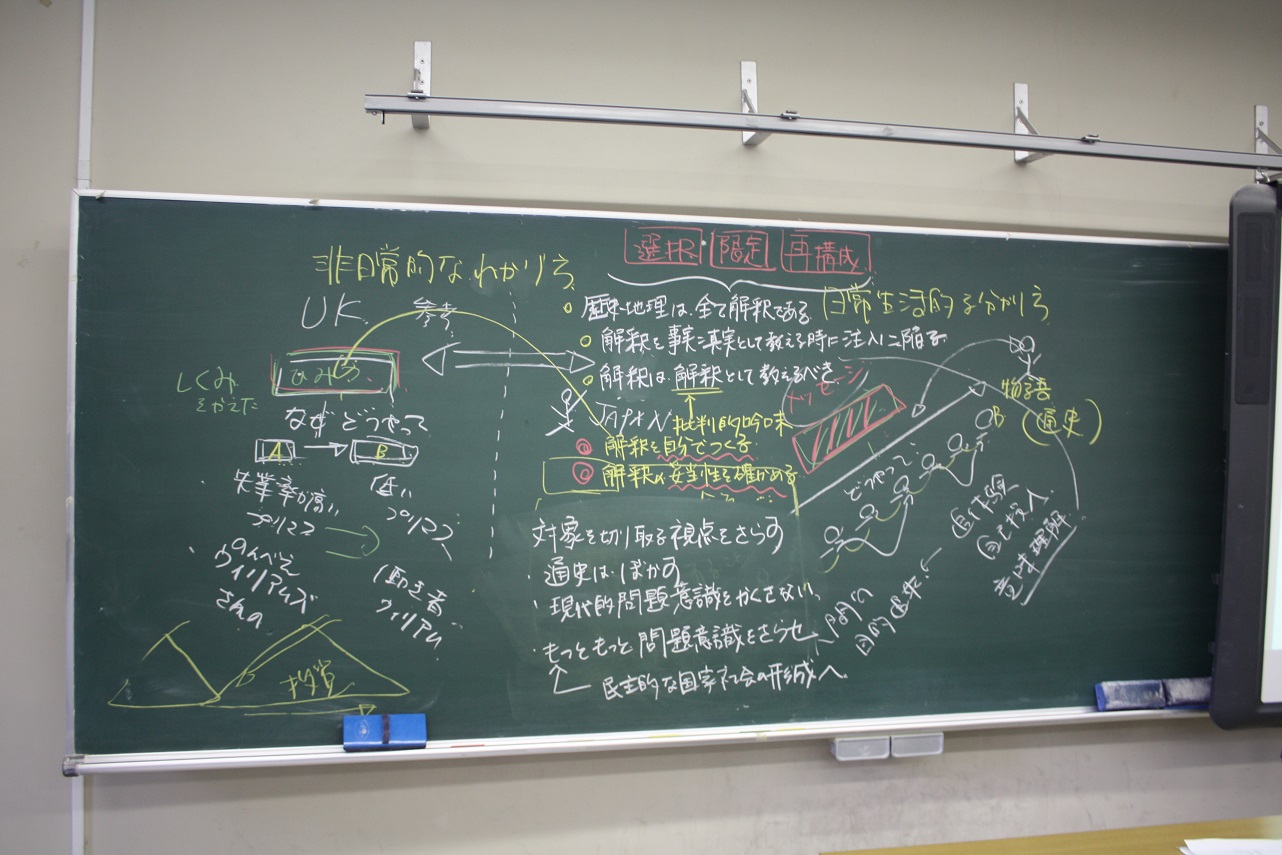 選択 限定 再構成
非日常的なわかり方
UK
参考
歴史・地理は、全て解釈である
日常生活的な分かり方
解釈を事実=真実として教える時に注入に陥る
解釈は、解釈として教えるべき
しくみ
なぜ どうやって
A → B
JAPAN
批判的吟味
解釈を自分でつくる
解釈の妥当性を確かめる
メッセージ
物語
B
(通史)
失業率が高い
低い
どうやって
のんべえ
ウィリアムズ
さんの
働き者
ウィリアム
対象を切り取る視点をさらす
・通史は、ぼかす
・現代的問題意識をかくさない、
・もっともっと問題意識をさらせ
民主的な国家社会の形成へ
目的
追体験
自己投入
意味理解